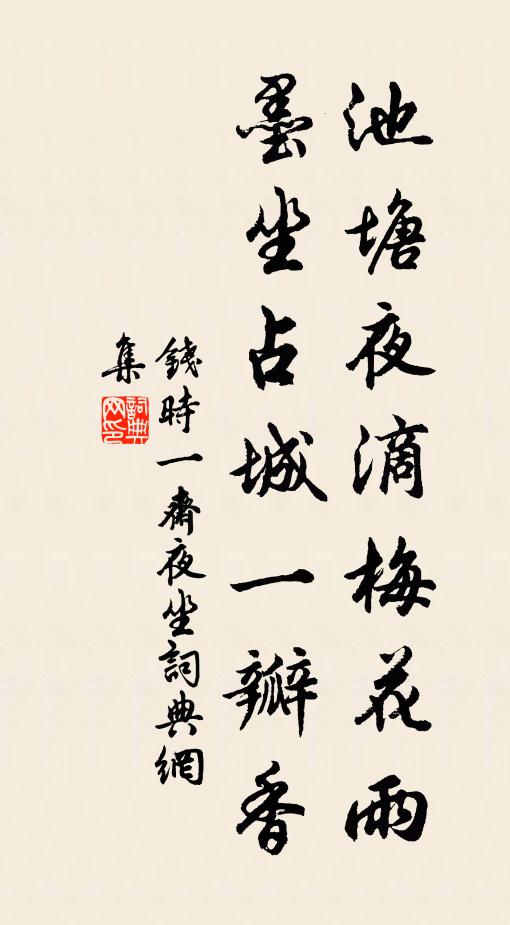 池塘夜滴梅花雨
墨坐占城一瓣香
錢時一齋夜坐詞典網
集
詞典
网印